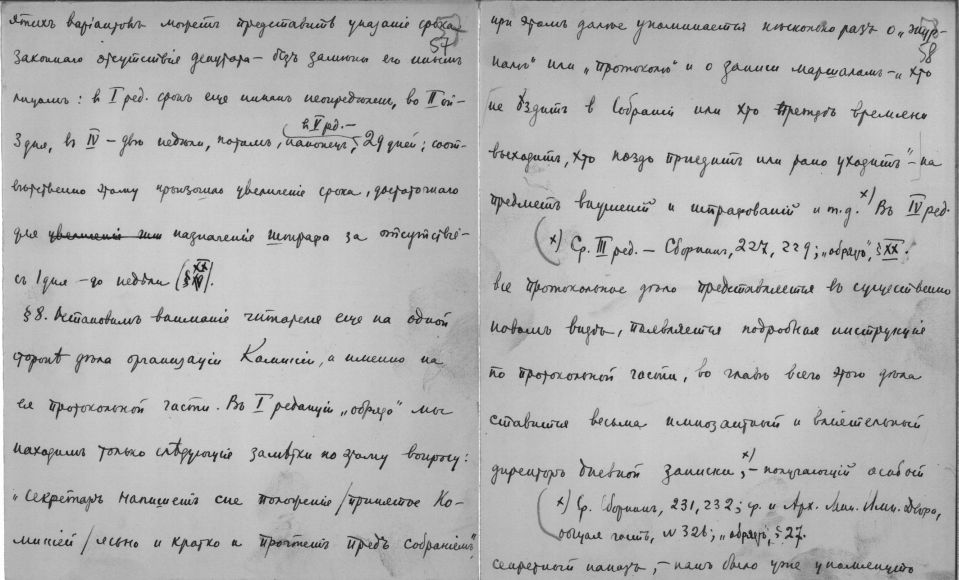 57
этихъ варіантовъ можетъ представить указаніе срока
законнаго отсутствія депутата – безъ замѣны его инымъ
лицомъ: в I ред. срокъ еще инымъ неопредѣленъ, во II ой –
3 дня, въ IV – двѣ недѣли, потомъ,
в V ред. –
наконецъ, 29 дней; соот-
вѣтственно этому произошло увеличеніе срока, достаточнаго
для назначенія штрафа за отсутствіе –
съ 1 дня – до недѣли (§ XX).
§ 8. Остановимъ вниманіе читателя еще на одной
сторонѣ дѣла организаціи Комиссіи, а именно на
ея протокольной части. Въ I редакціи „обряда" мы
находимъ только слѣдующіе замѣтки по этому вопросу:
„Секретарь напишетъ сие положеніе / принятое Ко-
мисіей / ясно и кратко и прочтетъ предъ собраніемъ",
58
при этомъ далѣе упоминается нѣсколько разъ о „жур-
налѣ" или „протоколѣ" и о записи маршаломъ – „кто
не ѣздитъ в Собраній или кто прежде времени
выходитъ, кто поздо приедитъ или рано уходитъ" – на
предметъ внушеній и штрафованій и т.д. x) Въ IV ред.
x) Ср. III ред. – Сборник, 227, 229; „обрядъ", § XX.
все протокольное дѣло представляется въ существенно
новомъ видѣ, появляется подробная инструкція
по протокольной части, во главѣ всего этого дѣла
ставится весьма импозантный и вліятельный
директоръ дневной записки, x) – получающій особый
x) Ср. Сборник, 231, 232; ср. и Арх. Мин. Имп. Двора,
общая часть, № 326; „обрядъ", § 27.
секретный наказъ, – намъ было уже упомянуто